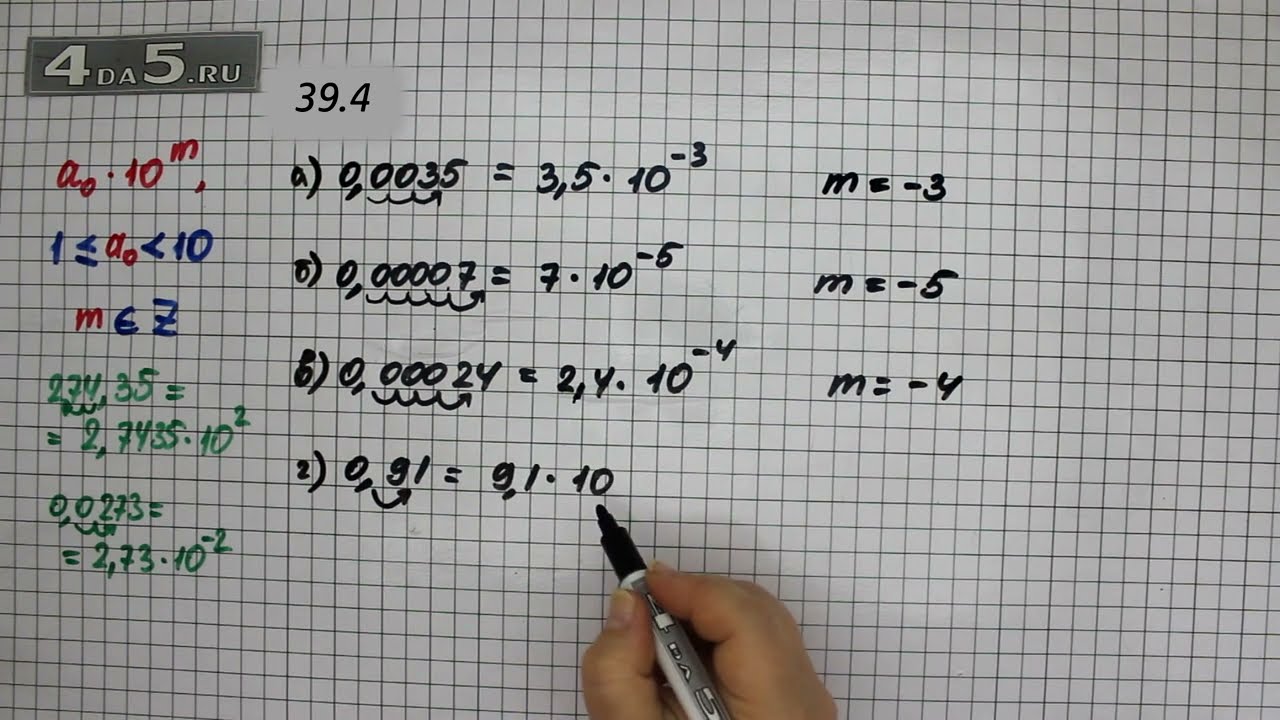 4DA5.RU
39.4
a₀ · 10ᵐ,
1 ≤ a₀ < 10
m ∈ Z
274,35 =
= 2,7435·10²
0,0273 =
= 2,73·10⁻²
а) 0,0035 = 3,5 · 10⁻³ m = -3
б) 0,00007 = 7 · 10⁻⁵ m = -5
в) 0,00024 = 2,4 · 10⁻⁴ m = -4
г) 0,91 = 9,1 · 10
4 DA 5